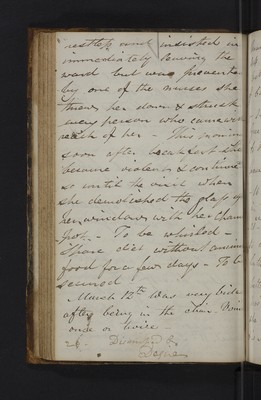 restless and insisted in
immediately leaving the
ward but was prevented
by one of the nurses she
threw her down & struck
every person who came within
reach of her - This morning
soon after breakfast she
became violent & continued
so until the visit when
she demolished the glass of
her window with her cham
pot. - To be whirled -
Spare diet without animal
food for a few days - To be
secured
March 12th Was very sick
after being in the chair
once or twice -